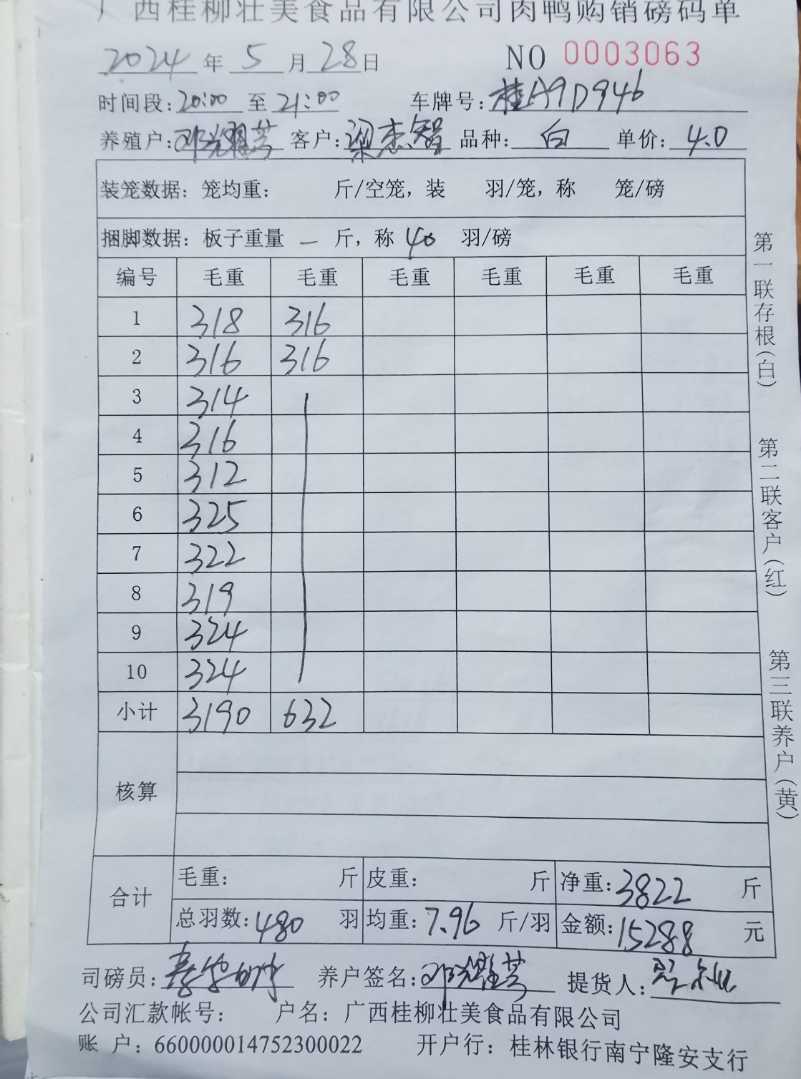 广西桂柳壮美食品有限公司肉鸭购销磅码单
2024 年 5 月 28 日 NO 0003063
时间段: 20:00 至 21:00 车牌号: 桂A9D946
养殖户: 客户: 梁杰智 品种: 白 单价: 4.0
装笼数据: 笼均重: 斤/空笼, 装 羽/笼, 称 笼/磅
捆脚数据: 板子重量 — 斤, 称 40 羽/磅
编号 毛重 毛重 毛重 毛重 毛重 毛重
1 318 316
2 316 316
3 314
4 316
5 312
6 325
7 322
8 319
9 324
10 324
小计 3190 632
核算
合计 毛重: 斤 皮重: 斤 净重: 3822 斤
总羽数: 480 羽 均重: 7.96 斤/羽 金额: 15288 元
司磅员: 养户签名: 提货人:
公司汇款帐号: 户名: 广西桂柳壮美食品有限公司
账 户: 660000014752300022 开户行: 桂林银行南宁隆安支行
第一联存根(白)
第二联客户(红)
第三联养户(黄)